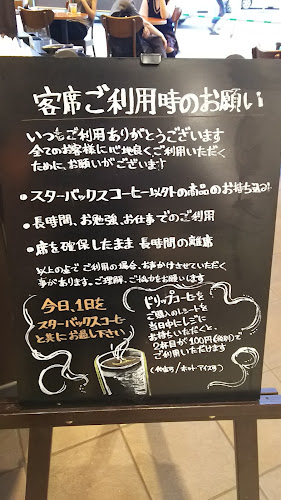 客席ご利用時のお願い
いつもご利用ありがとうございます
全てのお客様に心地良くご利用いただく
ために、お願いがございます!
•スターバックスコーヒー以外の商品のお持ち込み!
•長時間、お勉強、お仕事でのご利用
•席を確保したまま 長時間の離席
以上の点で ご利用の場合、お声かけさせていただく
事があります。ご理解、ご協力をお願いします
今日、1日を
スターバックスコーヒー
と共にお過し下さい
ドリップコーヒーを
ご購入のレシートを
当日中にレジに
お持ちいただくと、
2杯目が100円(税別)で
ご利用いただけます
/ホット アイス